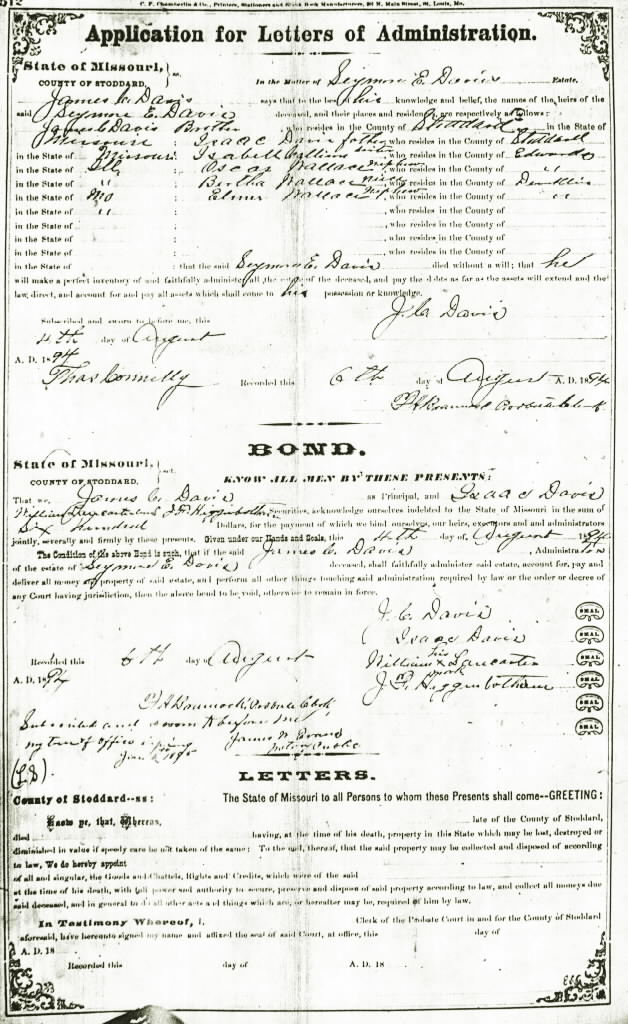 512
C. F. Chamberlin & Co., Printers, Stationers and Blank Book Manufacturers, St. Louis, Mo.
Application for Letters of Administration.
State of Missouri,
COUNTY OF STODDARD, ss.
In the Matter of Seymore E. Davis Estate.
James C. Davis says that to the best of his knowledge and belief, the names of the heirs of the
said Seymore E. Davis deceased, and their places and residence, are respectively as follows:
James C Davis Brother who resides in the County of Stoddard in the State of
Missouri : Isaac Davis father, who resides in the County of Stoddard
in the State of Missouri : Isabell , who resides in the County of Edwards
in the State of Ill : Oscar Wallace nephew, who resides in the County of "
in the State of : Bertha Wallace niece, who resides in the County of Dunklin
in the State of Mo : Elmer Wallace nephew, who resides in the County of "
in the State of " : , who resides in the County of
in the State of : , who resides in the County of
in the State of : , who resides in the County of
in the State of : , who resides in the County of
in the State of : that the said Seymore E. Davis died without a will; that he
will make a perfect inventory of and faithfully administer all the estate of the deceased, and pay the debts as far as the assets will extend and the
law, direct, and account for and pay all assets which shall come to his possession or knowledge.
J. C. Davis
Subscribed and sworn to before me, this
4th day of August
A. D. 1894
Thos Connelly Recorded this 6th day of August A. D. 1894
Probate Clerk
BOND.
State of Missouri,
COUNTY OF STODDARD, sct.
KNOW ALL MEN BY THESE PRESENTS:
That we, James C. Davis as Principal, and Isaac Davis
William Lancaster and J. F. Higginbotham Securities, acknowledge ourselves indebted to the State of Missouri in the sum of
Six hundred Dollars, for the payment of which we bind ourselves, our heirs, executors and and administrators
jointly, severally and firmly by these presents. Given under our Hands and Seals, this 4th day of, August 1894
The Condition of the above Bond is such, that if the said James C. Davis , Administrator
of the estate of Seymore E. Davis deceased, shall faithfully administer said estate, account for, pay and
deliver all money or property of said estate, and perform all other things touching said administration required by law or the order or decree of
any Court having jurisdiction, then the above bond to be void, otherwise to remain in force.
J. C. Davis SEAL
Isaac Davis SEAL
Recorded this 6th day of August William his x mark Lancaster SEAL
A. D. 1894 J. F. Higginbotham SEAL
Probate Clerk SEAL
Subscribed and sworn to before me SEAL
my term of office James N. Evans
June 1895 Notary Public
(L S)
LETTERS.
County of Stoddard--ss: The State of Missouri to all Persons to whom these Presents shall come--GREETING:
Know ye, that, Whereas, late of the County of Stoddard,
died having, at the time of his death, property in this State which may be lost, destroyed or
diminished in value if speedy care be not taken of the same: To the end, therefor, that the said property may be collected and disposed of according
to law, We do hereby appoint
of all and singular, the Goods and Chattels, Rights and Credits, which were of the said
at the time of his death, with full power and authority to secure, preserve and dispose of said property according to law, and collect all moneys due
said deceased, and in general to do all other acts and things which are, or hereafter may be, required of him by law.
In Testimony Whereof, I, Clerk of the Probate Court in and for the County of Stoddard
aforesaid, have hereunto signed my name and affixed the seal of said Court, at office, this day of
A. D. 18
Recorded this day of A. D. 18